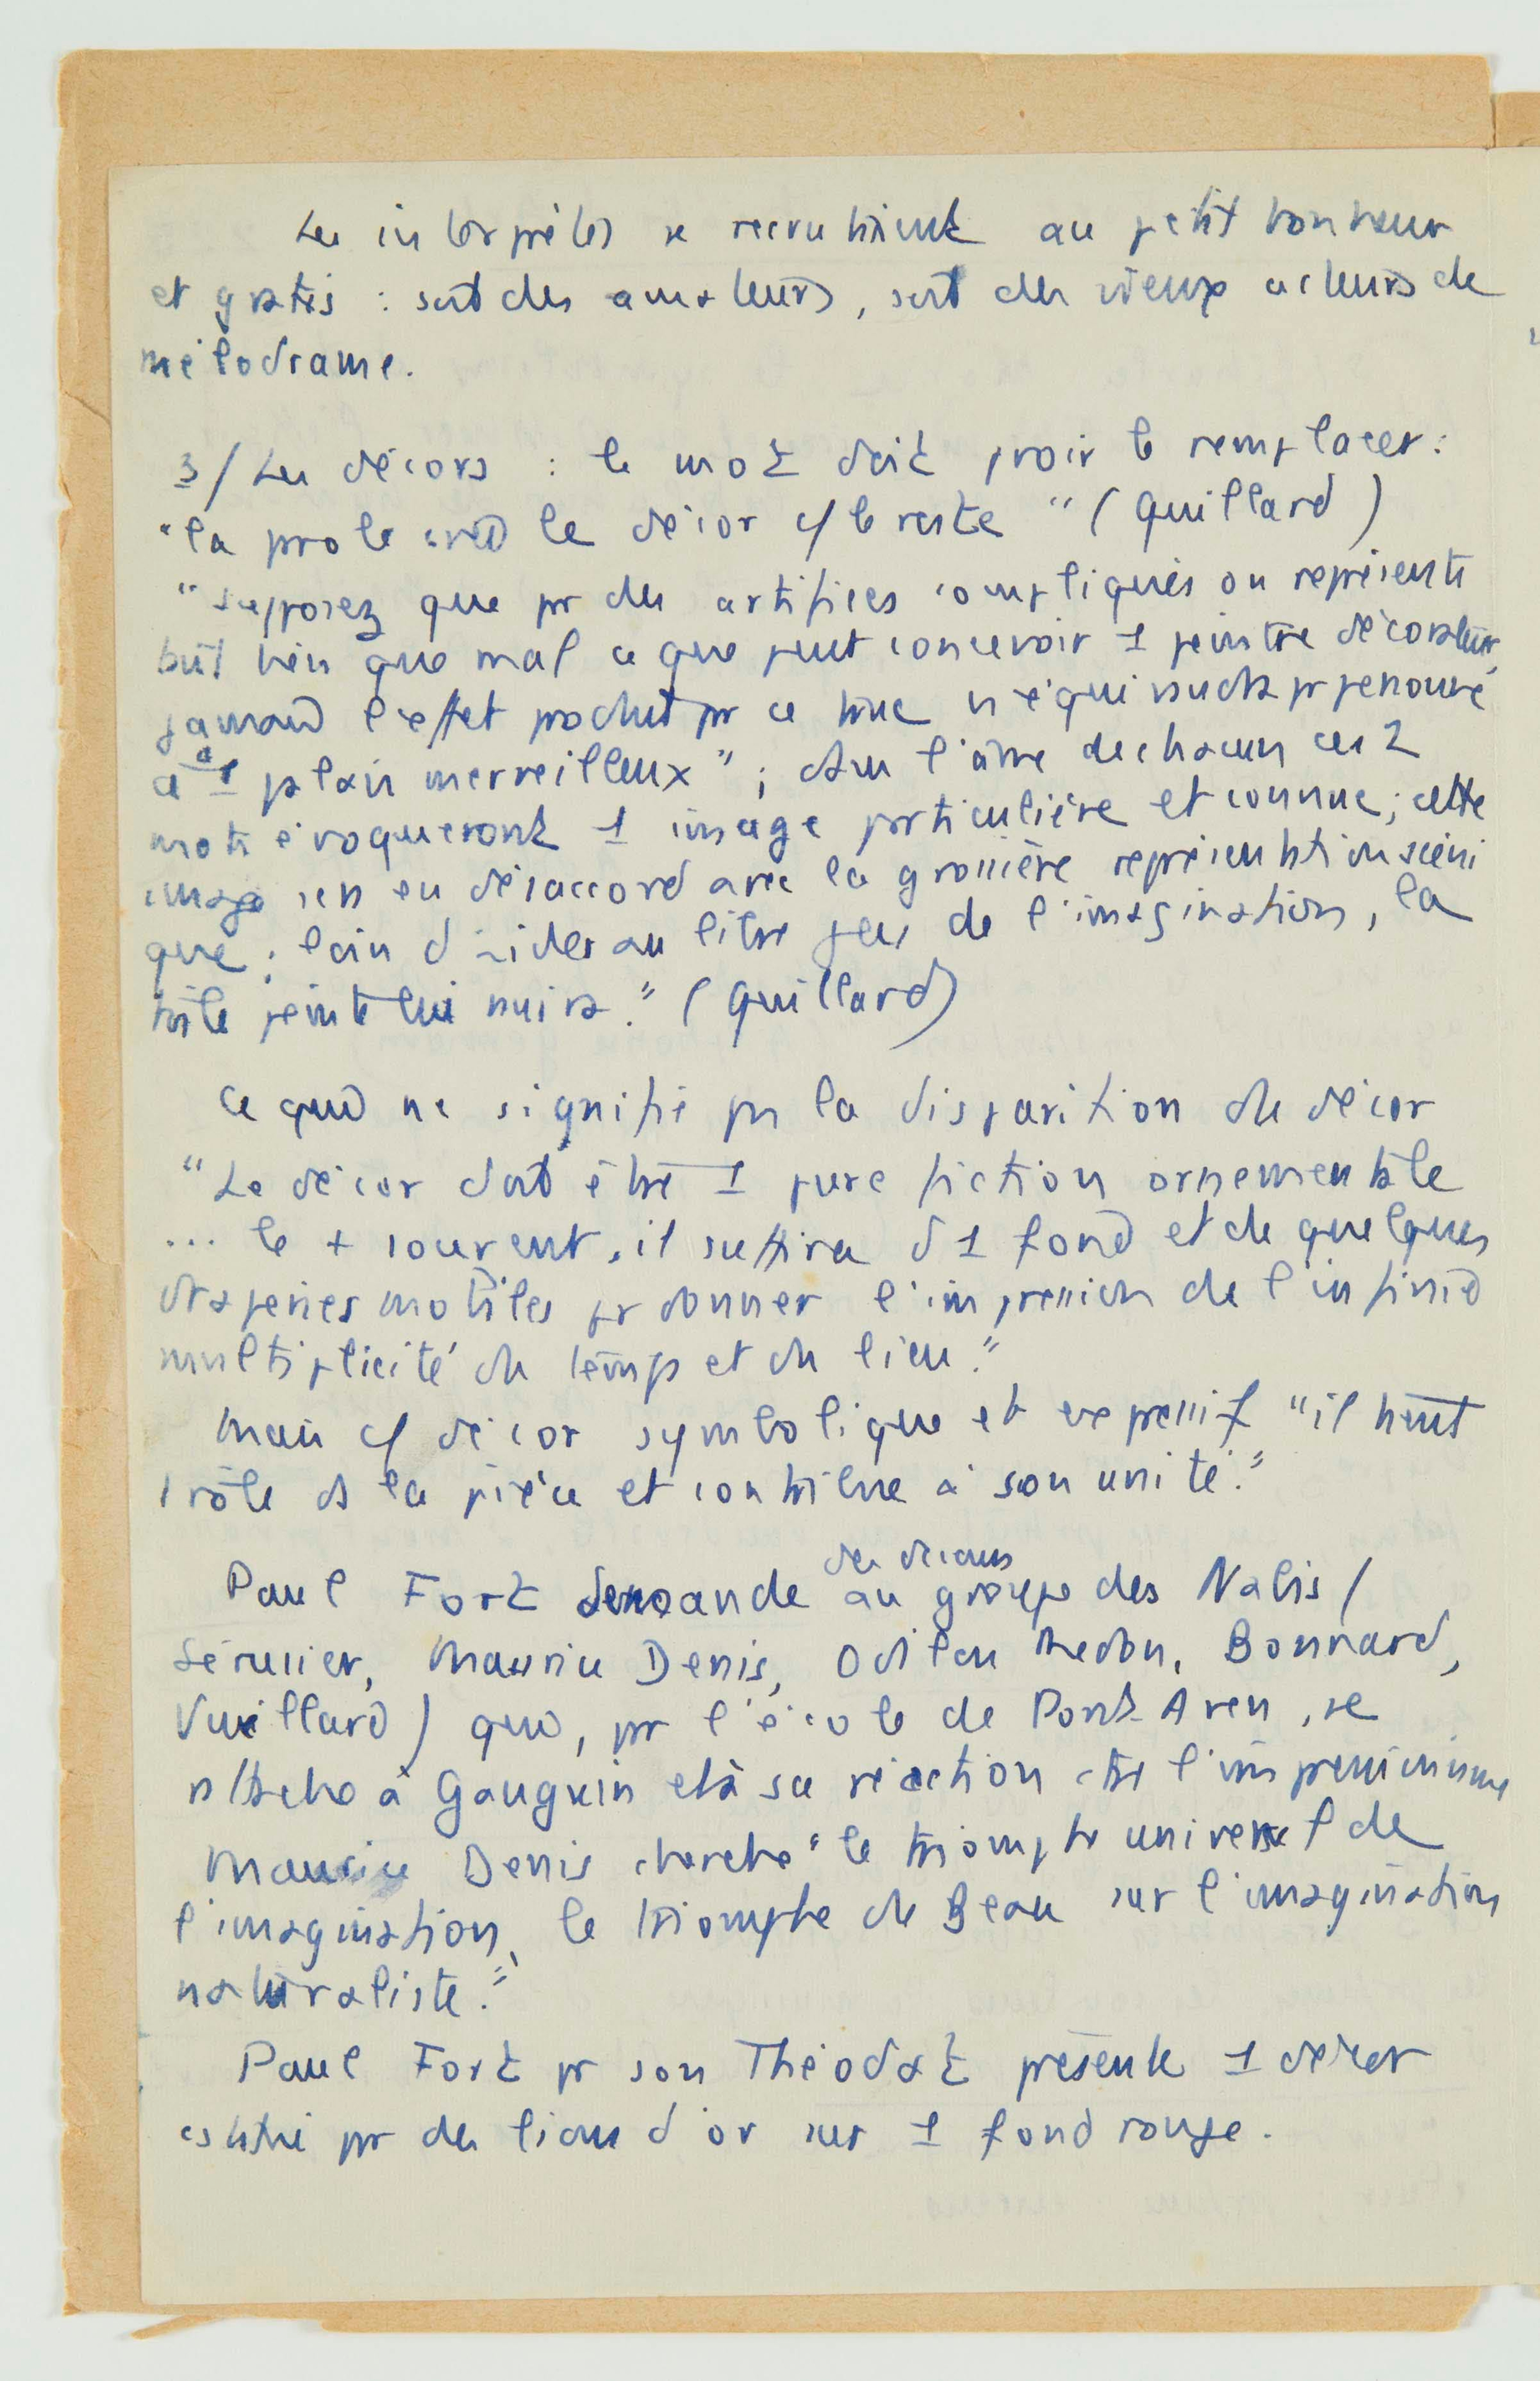 Les interprètes se recrutaient au petit bonheur
et gratis : soit des amateurs, soit des vieux acteurs de
mélodrame.
3/ Les décors : le mot doit pvoir le remplacer :
"la prole crée le décor c/ le reste" (Quillard)
"Supposez que pr des artifices compliqués on représente
tant bien que mal ce que peut concevoir 1 peintre décorateur,
jamais l'effet produit pr ce truc n'équivaudra pr
à "1 palais merveilleux" ; ds l'âme de chacun ces 2
mots évoqueront 1 image particulière et connue ; cette
image sera en désaccord avec la grossière représentation scéni
que ; loin d'aider au libre jeu de l'imagination, la
toile peinte lui nuira." (Quillard)
Ce qui ne signifie pas la disparition du décor
"Le décor doit être 1 pure fiction ornementale
... le + souvent, il suffira d'1 fond et de quelques
draperies mobiles pr donner l'impression de l'infinie
multiplicité du temps et du lieu."
Mais c/ décor symbolique et expressif "il tient
1 rôle ds la pièce et contribue à son unité."
Paul Fort demande des décors au groupe des Nabis (
Sérusier, Maurice Denis, Odilon Redon, Bonnard,
Vuillard) qui, pr l'école de Pont Aven, se
rattache à Gauguin et à sa réaction ctre l'impressionnisme
Maurice Denis cherche "le triomphe universel de
l'imagination, le triomphe du Beau sur l'imagination
naturaliste."
Paul Fort pr son Théodat présente 1 décor
constitué pr des lions d'or sur 1 fond rouge.